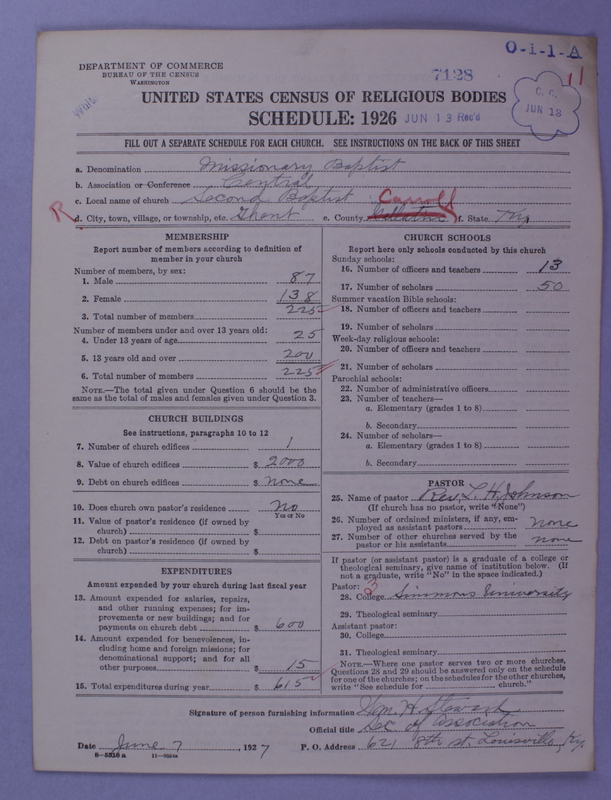 O-1-1-A
DEPARTMENT OF COMMERCE
BUREAU OF THE CENSUS
WASHINGTON
7128
11
C. C.
JUN 13
UNITED STATES CENSUS OF RELIGIOUS BODIES
SCHEDULE: 1926 JUN 13 Rec'd
FILL OUT A SEPARATE SCHEDULE FOR EACH CHURCH. SEE INSTRUCTIONS ON THE BACK OF THIS SHEET
a. Denomination Missionary Baptist
b. Association or Conference Central
c. Local name of church Second Baptist Carroll
R d. City, town, village, or township, etc. Ghent e. County f. State Ky
MEMBERSHIP
Report number of members according to definition of
member in your church
Number of members, by sex:
1. Male 87
2. Female 138
3. Total number of members 225
Number of members under and over 13 years old:
4. Under 13 years of age 25
5. 13 years old and over 200
6. Total number of members 225
NOTE.—The total given under Question 6 should be the
same as the total of males and females given under Question 3.
CHURCH BUILDINGS
See instructions, paragraphs 10 to 12
7. Number of church edifices 1
8. Value of church edifices $ 2000
9. Debt on church edifices $ none
10. Does church own pastor's residence no
Yes or No
11. Value of pastor's residence (if owned by
church) $
12. Debt on pastor's residence (if owned by
church) $
EXPENDITURES
Amount expended by your church during last fiscal year
13. Amount expended for salaries, repairs,
and other running expenses; for im-
provements or new buildings; and for
payments on church debt $ 600
14. Amount expended for benevolences, in-
cluding home and foreign missions; for
denominational support; and for all
other purposes $ 15
15. Total expenditures during year $ 615
CHURCH SCHOOLS
Report here only schools conducted by this church
Sunday schools:
16. Number of officers and teachers 13
17. Number of scholars 50
Summer vacation Bible schools:
18. Number of officers and teachers
19. Number of scholars
Week-day religious schools:
20. Number of officers and teachers
21. Number of scholars
Parochial schools:
22. Number of administrative officers
23. Number of teachers—
a. Elementary (grades 1 to 8)
b. Secondary
24. Number of scholars—
a. Elementary (grades 1 to 8)
b. Secondary
PASTOR
25. Name of pastor Rev. L. H. Johnson
(If church has no pastor, write "None")
26. Number of ordained ministers, if any, em-
ployed as assistant pastors none
27. Number of other churches served by the
pastor or his assistants none
If pastor (or assistant pastor) is a graduate of a college or
theological seminary, give name of institution below. (If
not a graduate, write "No" in the space indicated.)
Pastor:
28. College Simmons University
29. Theological seminary
Assistant pastor:
30. College
31. Theological seminary
NOTE.—Where one pastor serves two or more churches,
Questions 28 and 29 should be answered only on the schedule
for one of the churches; on the schedules for the other churches,
write "See schedule for church."
Signature of person furnishing information Wm. H. Steward
Official title Sec of association
Date June 7, 1927 P. O. Address 621 8th st. Louisville, Ky.
8-5316 a